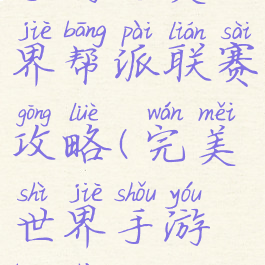 jiè bāng pài lián sài
界帮派联赛
gōng lüè wán měi
攻略(完美
shì jiè shǒu yóu
世界手游